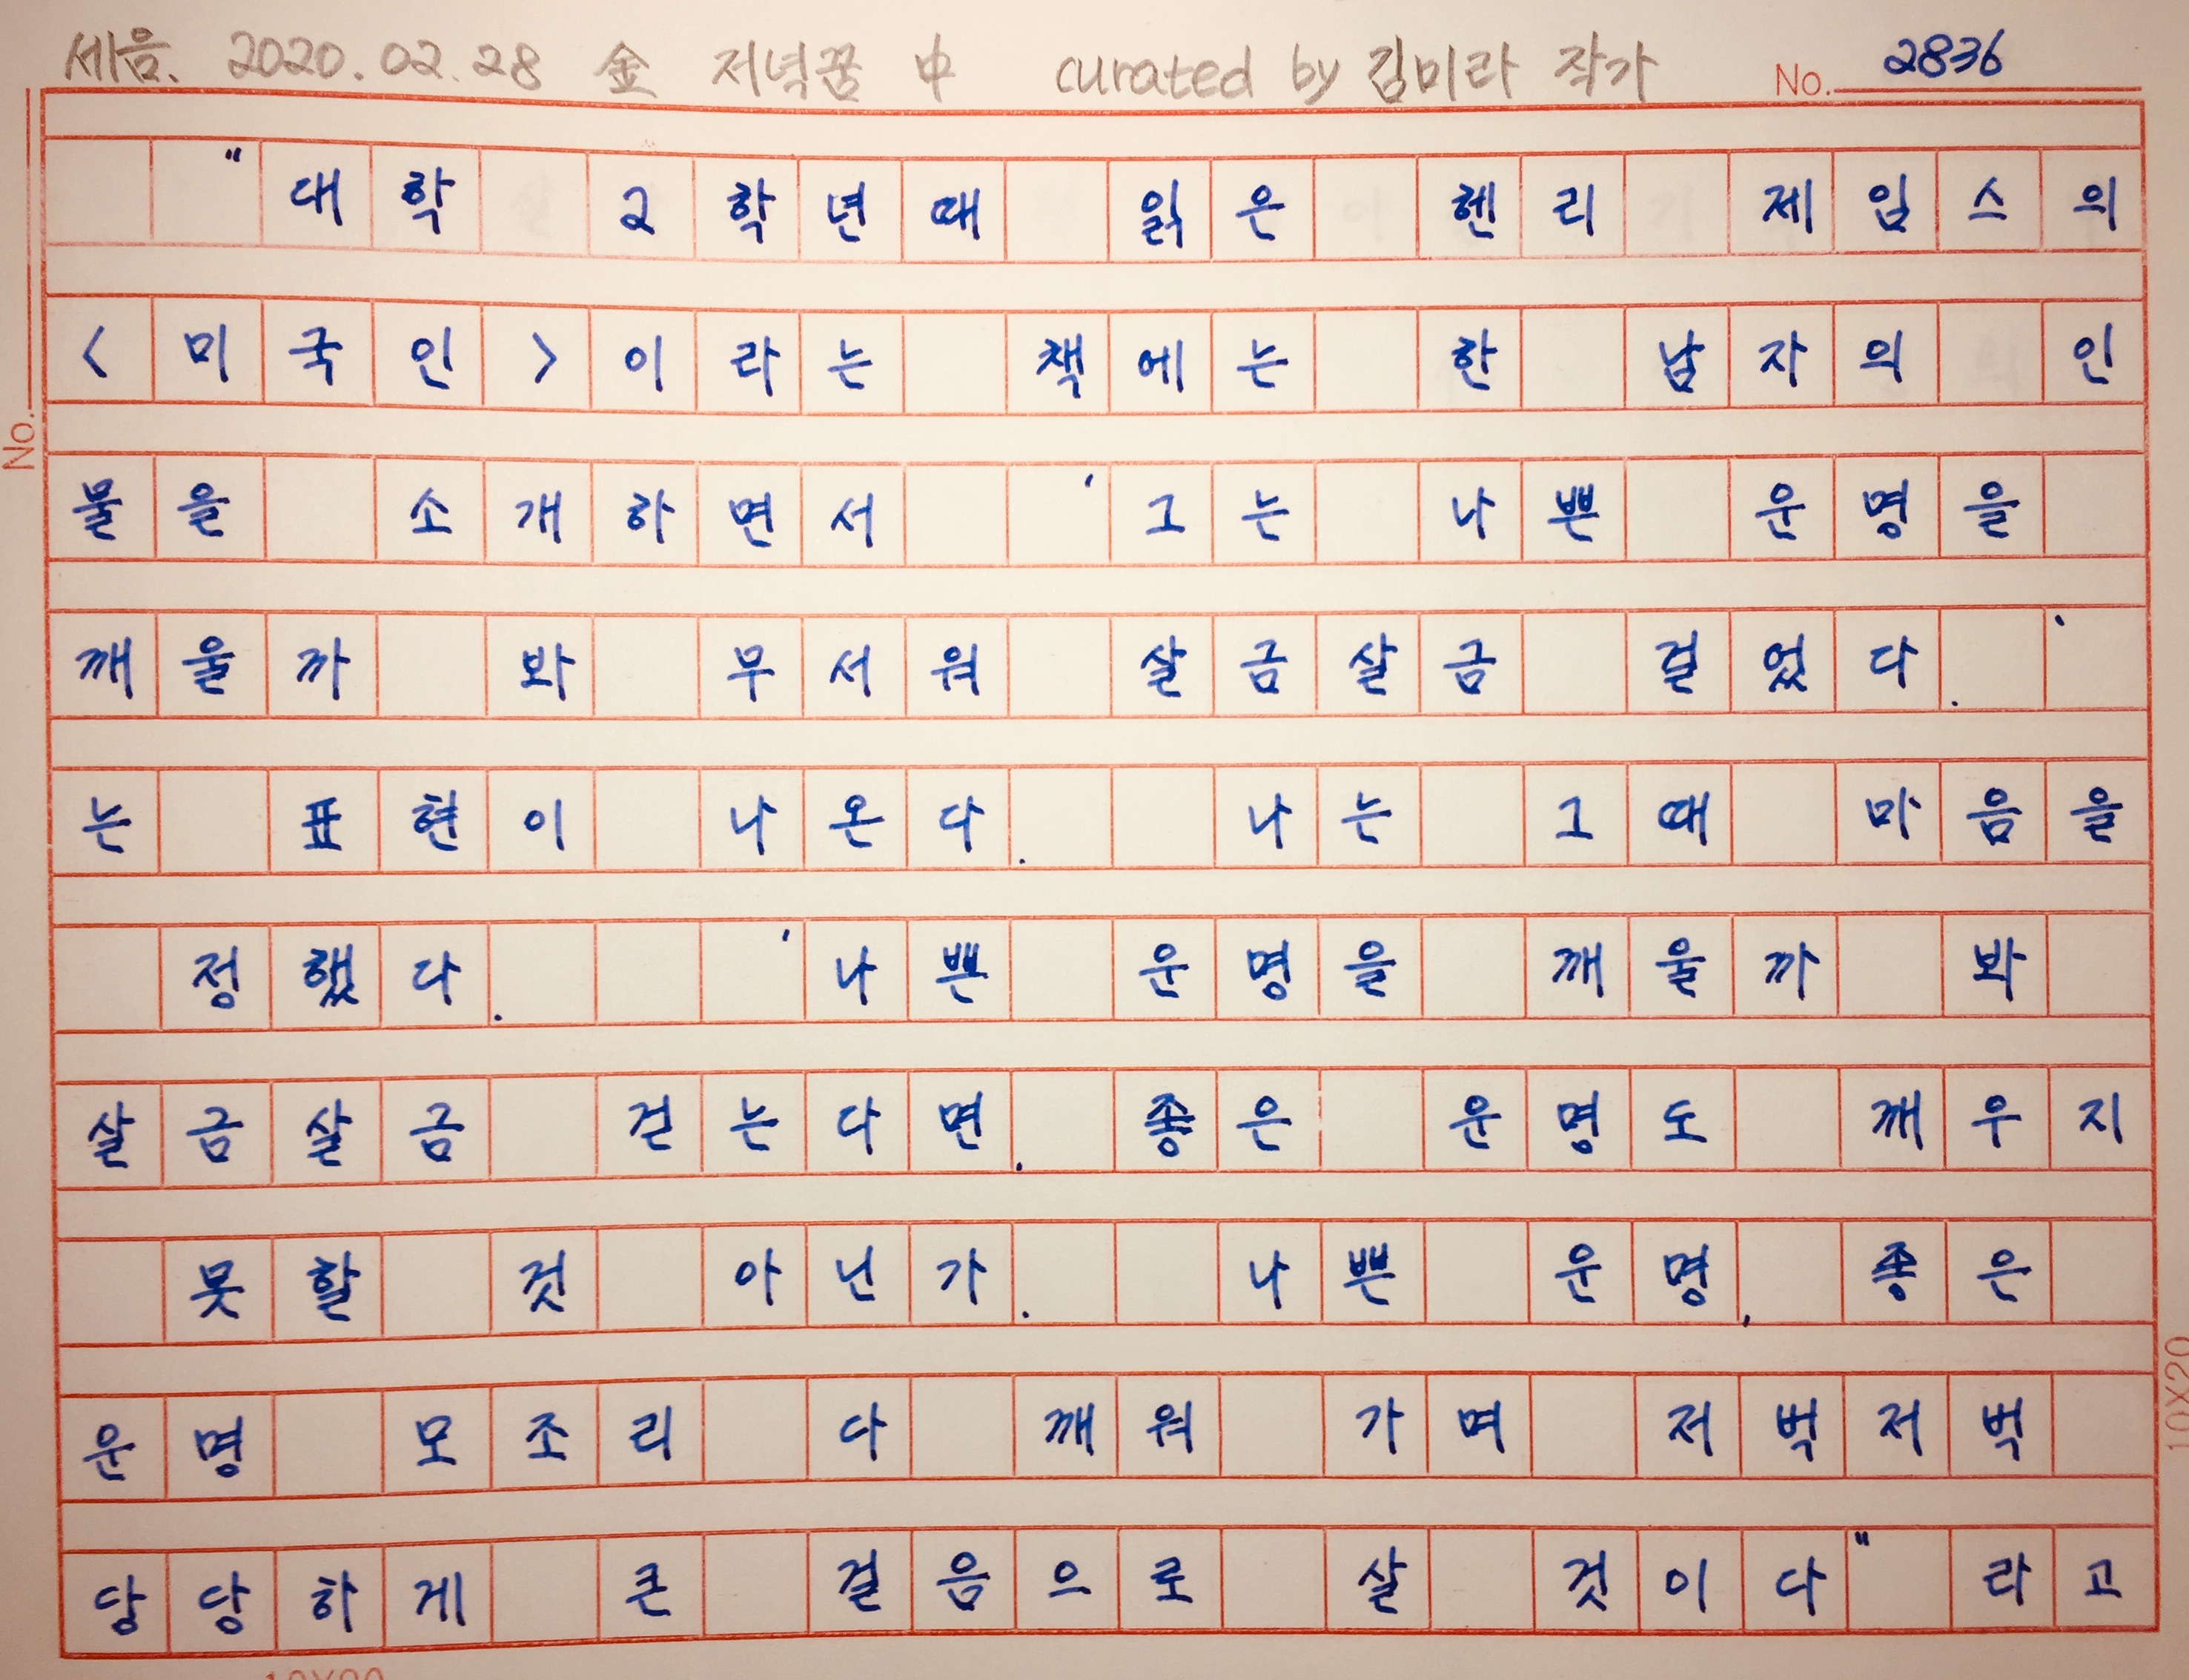 세음. 2020.02.28 金 저녁꿈 中 curated by 김미라 작가 No. 2836
"대학 2학년때 읽은 헨리 제임스의
<미국인>이라는 책에는 한 남자의 인
물을 소개하면서 '그는 나쁜 운명을
깨울까 봐 무서워 살금살금 걸었다.'
는 표현이 나온다. 나는 그때 마음을
정했다. '나쁜 운명을 깨울까 봐
살금살금 걷는다면. 좋은 운명도 깨우지
못할 것 아닌가. 나쁜 운명, 좋은
운명 모조리 다 깨워 가며 저벅저벅
당당하게 큰 걸음으로 살 것이다" 라고
No.
10X20
10X20